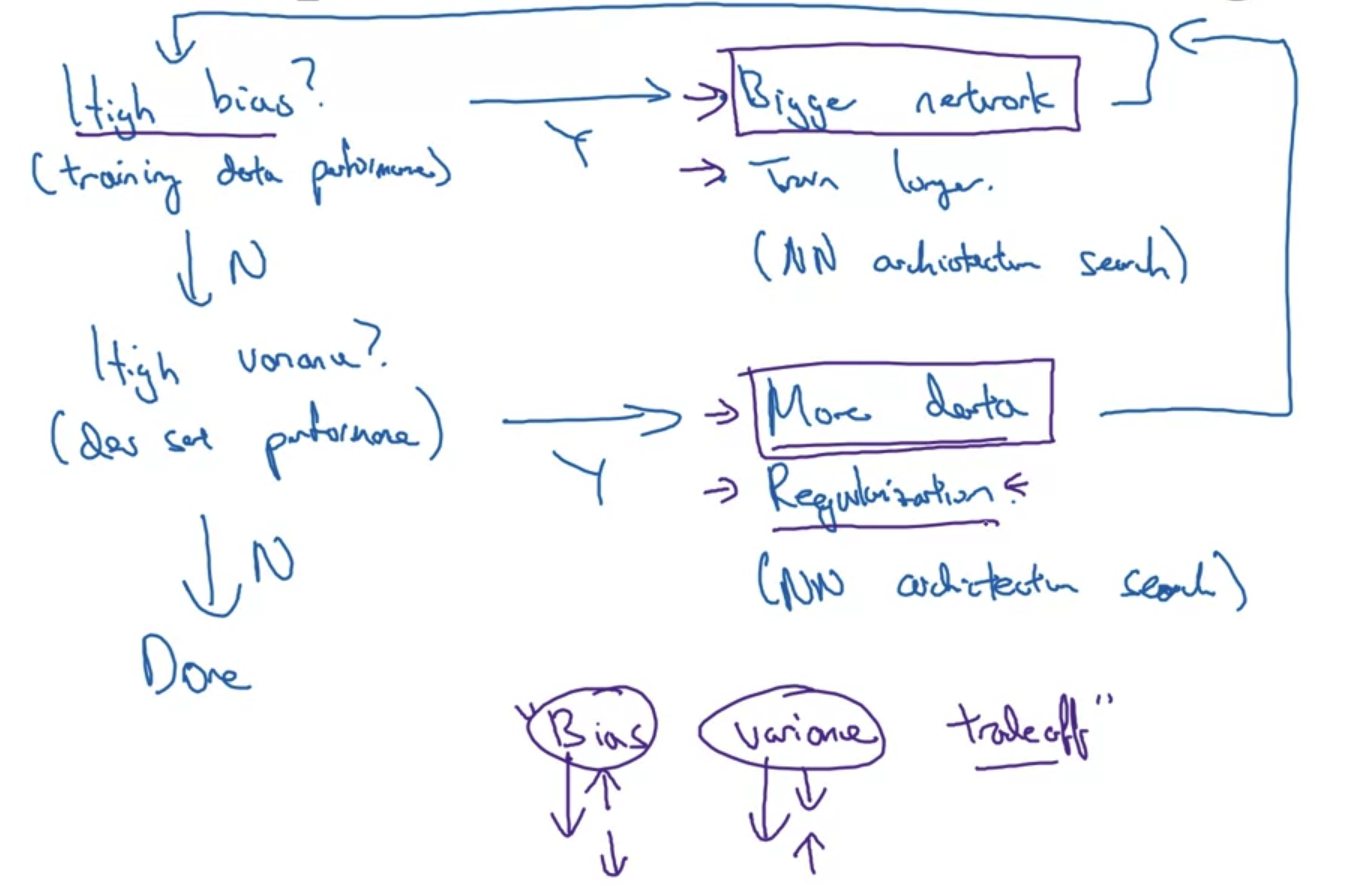 High bias?
(training data performance)
Y
Bigge network
Train longer.
(NN archiotectun search)
N
High variance?
(Dev set performance)
Y
More data
Regularization.
(NN architectun search)
N
Done
"Bias variance tradeoff"